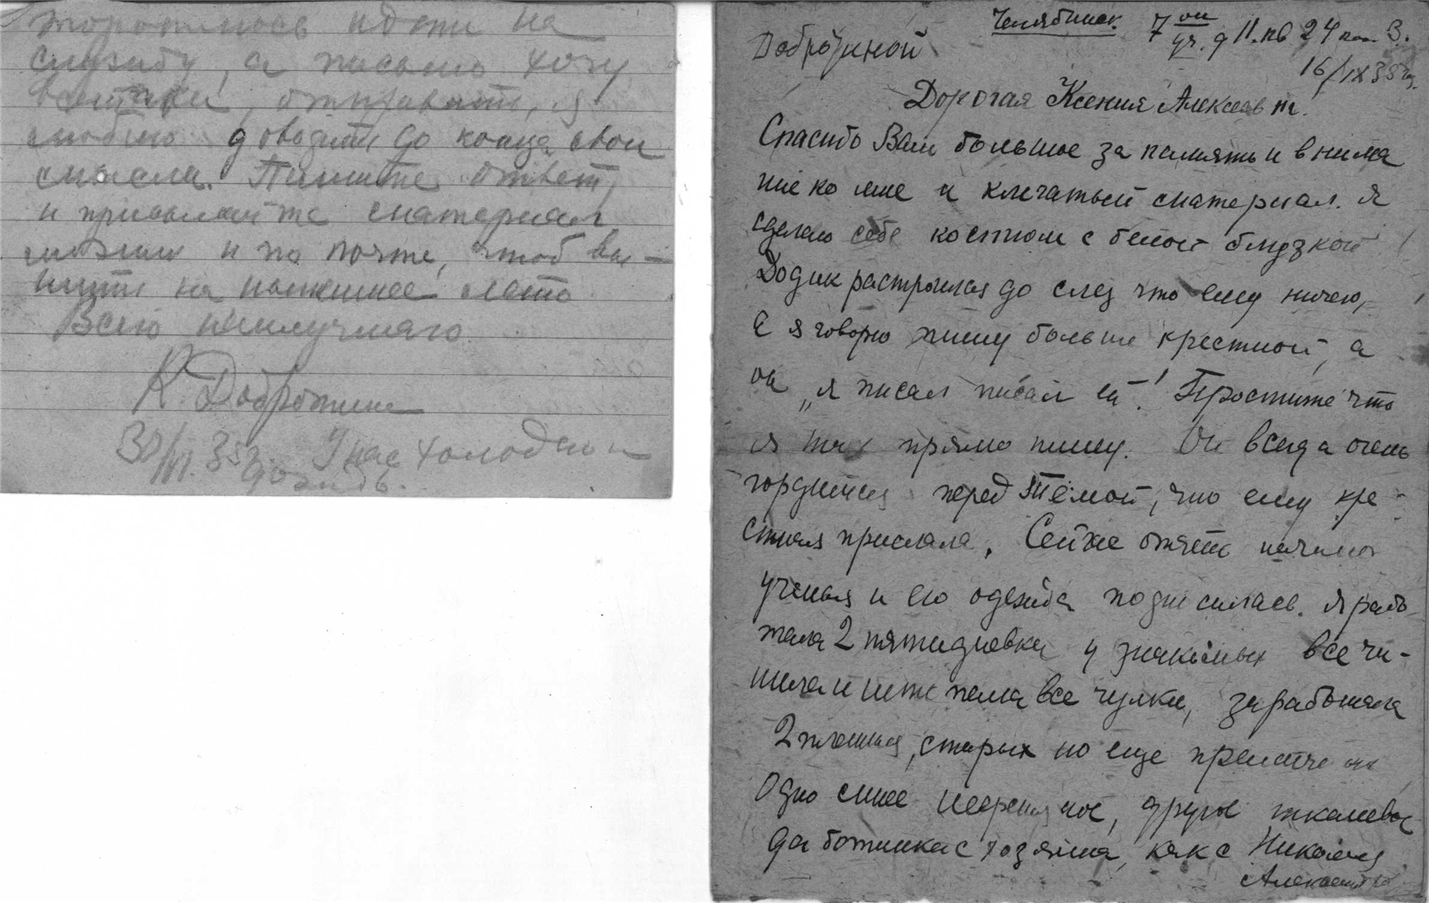 торопилось идти на
службу, а письмо хочу
отправить, я
люблю доводить до конца свои
смысла. Пишите ответ,
и присылайте материал
можно и по почте, чтоб вы-
шить на нынешнее лето
Всего наилучшего
К. Добротина
30/VI.35г. У нас холодно и
дождь.
Челябинск. 7ой уч. д 11. кв 24 3.
Добротиной
16/IX 35г.
Дорогая Ксения Алексеевна.
Спасибо Вам большое за память и внима
ние ко мне и клетчатый материал. Я
сделаю себе костюм с белой блузкой
Додик растроился до слез что ему ничего,
а я говорю пишу больше крестной, а
он „я писал писал ей"! Простите что
я так прямо пишу. Он всегда очень
гордится перед Тёмой, что ему кре-
стная прислала. Сейчас опять начались
ученья и его одежда подносилась. Я рабо
тала 2 пятидневки у знакомых все чи-
нила и штопала все чулки, заработала
2 платья, старых но еще
Одно синее шерстяное, другое
да ботинки с хозяина, как с Николая
Алексеевича